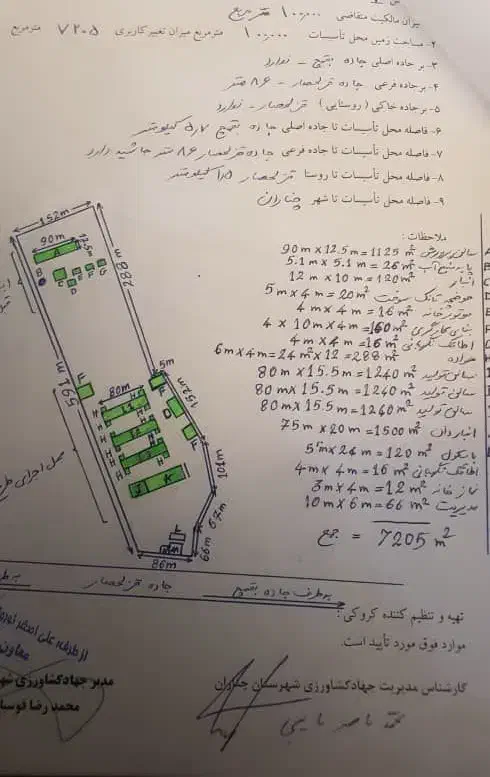 میزان مالکیت متقاضی ۱۰۰,۰۰۰ متر مربع
۲- مساحت زمین محل تأسیسات ۱۰۰,۰۰۰ مترمربع میزان تغییر کاربری ۷۲۰۵ مترمربع
۳- بر جاده اصلی جاده بقمچ - ندارد
۴- بر جاده فرعی جاده قزلحصار - ۸۶ متر
۵- بر جاده خاکی (روستایی) قزلحصار - ندارد
۶- فاصله محل تأسیسات تا جاده اصلی جاده بقمچ ۵,۷ کیلومتر
۷- فاصله محل تأسیسات تا جاده فرعی جاده قزلحصار ۸۶ متر حاشیه دارد
۸- فاصله محل تأسیسات تا روستا قزلحصار ۱,۵ کیلومتر
۹- فاصله محل تأسیسات تا شهر چناران
ملاحظات:
سالن پرورش 90m x 12.5m = 1125 m² A
5.1m x 5.1m = 26 m² B
انبار 12m x 10m = 120m² C
سوخت 5m x 4m = 20m² D
موتورخانه 4m x 4m = 16 m² E
بنای کارگری 4 x 10m x 4m = 160m² F
اطاقک نگهبانی 4m x 4m = 16 m²
6m x 4m = 24 m² x 12 = 288 m²
سالن تولید 80m x 15.5m = 1240 m²
سالن تولید 80m x 15.5m = 1240 m²
سالن تولید 80m x 15.5m = 1240 m²
انبار 75m x 20m = 1500 m²
باسکول 5m x 24m = 120 m²
اطاقک نگهبانی 4m x 4m = 16 m²
نمازخانه 3m x 4m = 12 m²
مدیریت 10m x 6m = 66 m²
جمع = 7205 m²
152m
90m
12.5m
A
B
C
E
F
G
288m
591m
F
80m
5m
152m
H
D
F
J
K
101m
67m
66m
L
86m
محل اجرای طرح
بطرف جاده بقمچ جاده قزلحصار
تهیه و تنظیم کننده کروکی:
موارد فوق مورد تأیید است.
کارشناس مدیریت جهادکشاورزی شهرستان چناران
از طرف علی اصغر
معاون
مدیر جهادکشاورزی
محمد رضا